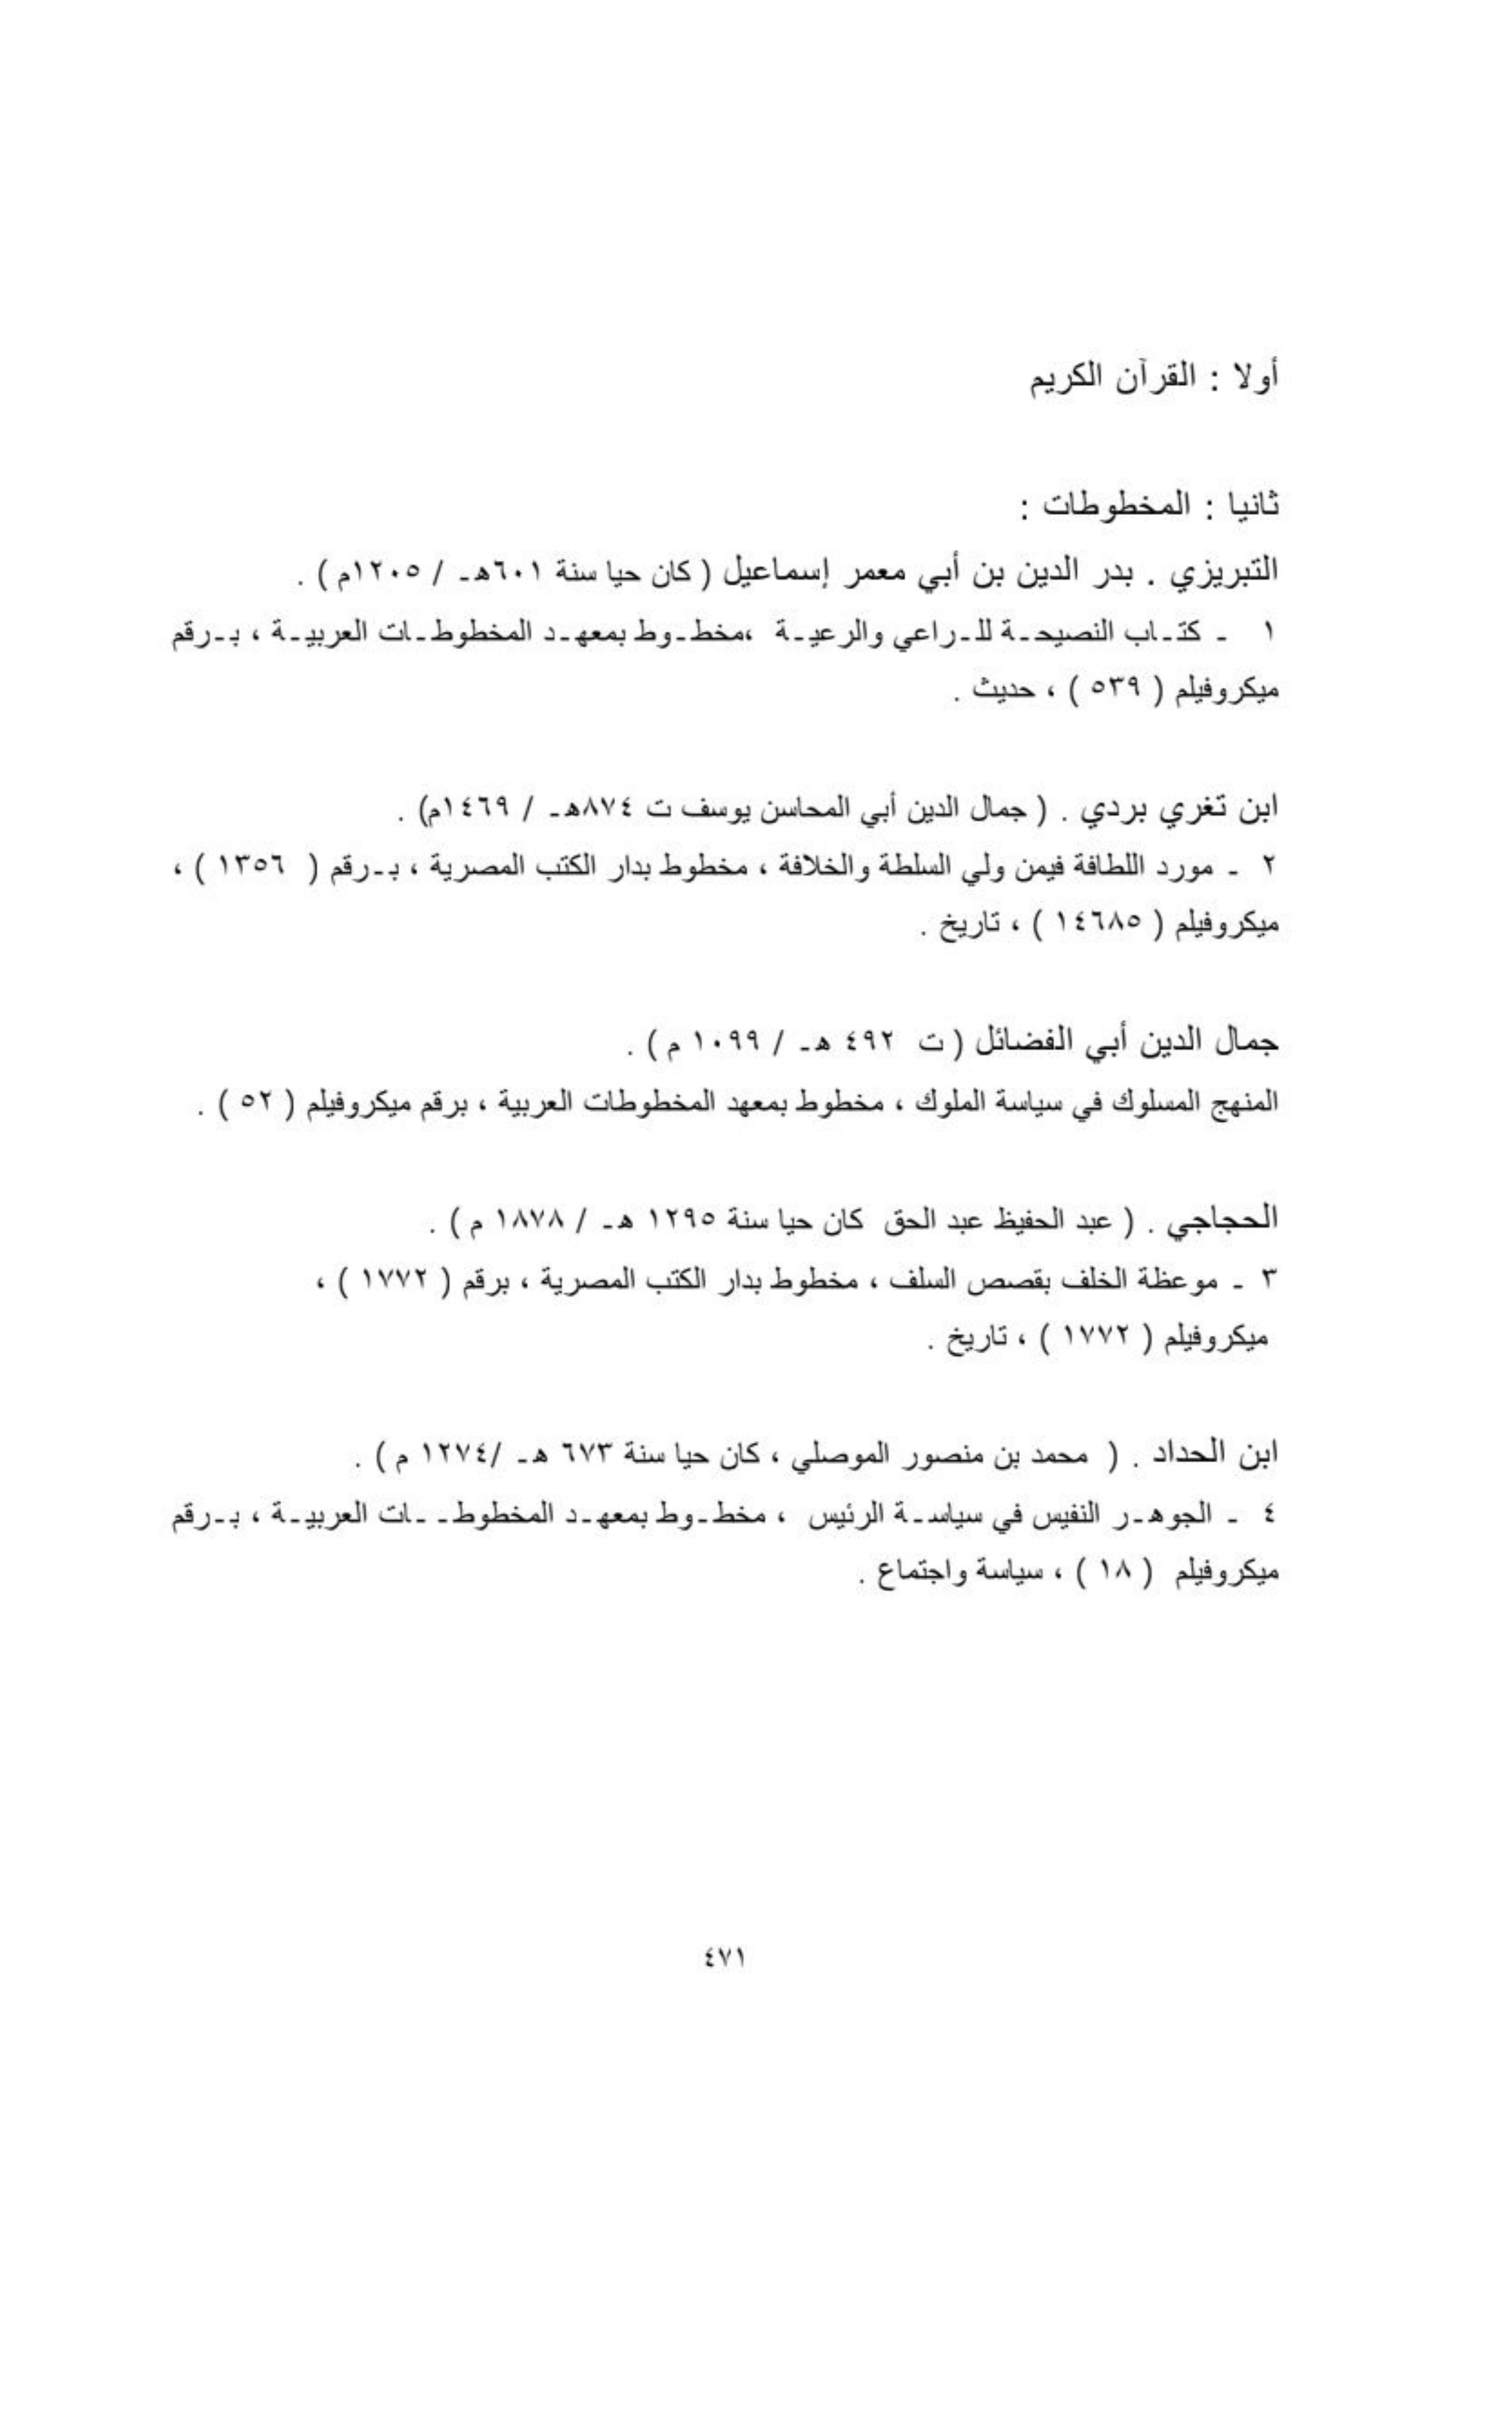 أولا : القرآن الكريم
ثانيا : المخطوطات :
التبريزي . بدر الدين بن أبي معمر إسماعيل ( كان حيا سنة ٦٠١هـ / ١٢٠٥م ) .
١ - كتـاب النصيحـة للـراعي والرعيـة ،مخطـوط بمعهـد المخطوطـات العربيـة ، بـرقم
ميكروفيلم ( ٥٣٩ ) ، حديث .
ابن تغري بردي . ( جمال الدين أبي المحاسن يوسف ت ٨٧٤هـ / ١٤٦٩م) .
٢ - مورد اللطافة فيمن ولي السلطة والخلافة ، مخطوط بدار الكتب المصرية ، بـرقم ( ١٣٥٦ ) ،
ميكروفيلم ( ١٤٦٨٥ ) ، تاريخ .
جمال الدين أبي الفضائل ( ت ٤٩٢ هـ / ١٠٩٩ م ) .
المنهج المسلوك في سياسة الملوك ، مخطوط بمعهد المخطوطات العربية ، برقم ميكروفيلم ( ٥٢ ) .
الحجاجي . ( عبد الحفيظ عبد الحق كان حيا سنة ١٢٩٥ هـ / ١٨٧٨ م ) .
٣ - موعظة الخلف بقصص السلف ، مخطوط بدار الكتب المصرية ، برقم ( ١٧٧٢ ) ،
ميكروفيلم ( ١٧٧٢ ) ، تاريخ .
ابن الحداد . ( محمد بن منصور الموصلي ، كان حيا سنة ٦٧٣ هـ /١٢٧٤ م ) .
٤ - الجوهـر النفيس في سياسـة الرئيس ، مخطـوط بمعهـد المخطوطـات العربيـة ، بـرقم
ميكروفيلم ( ١٨ ) ، سياسة واجتماع .
٤٧١